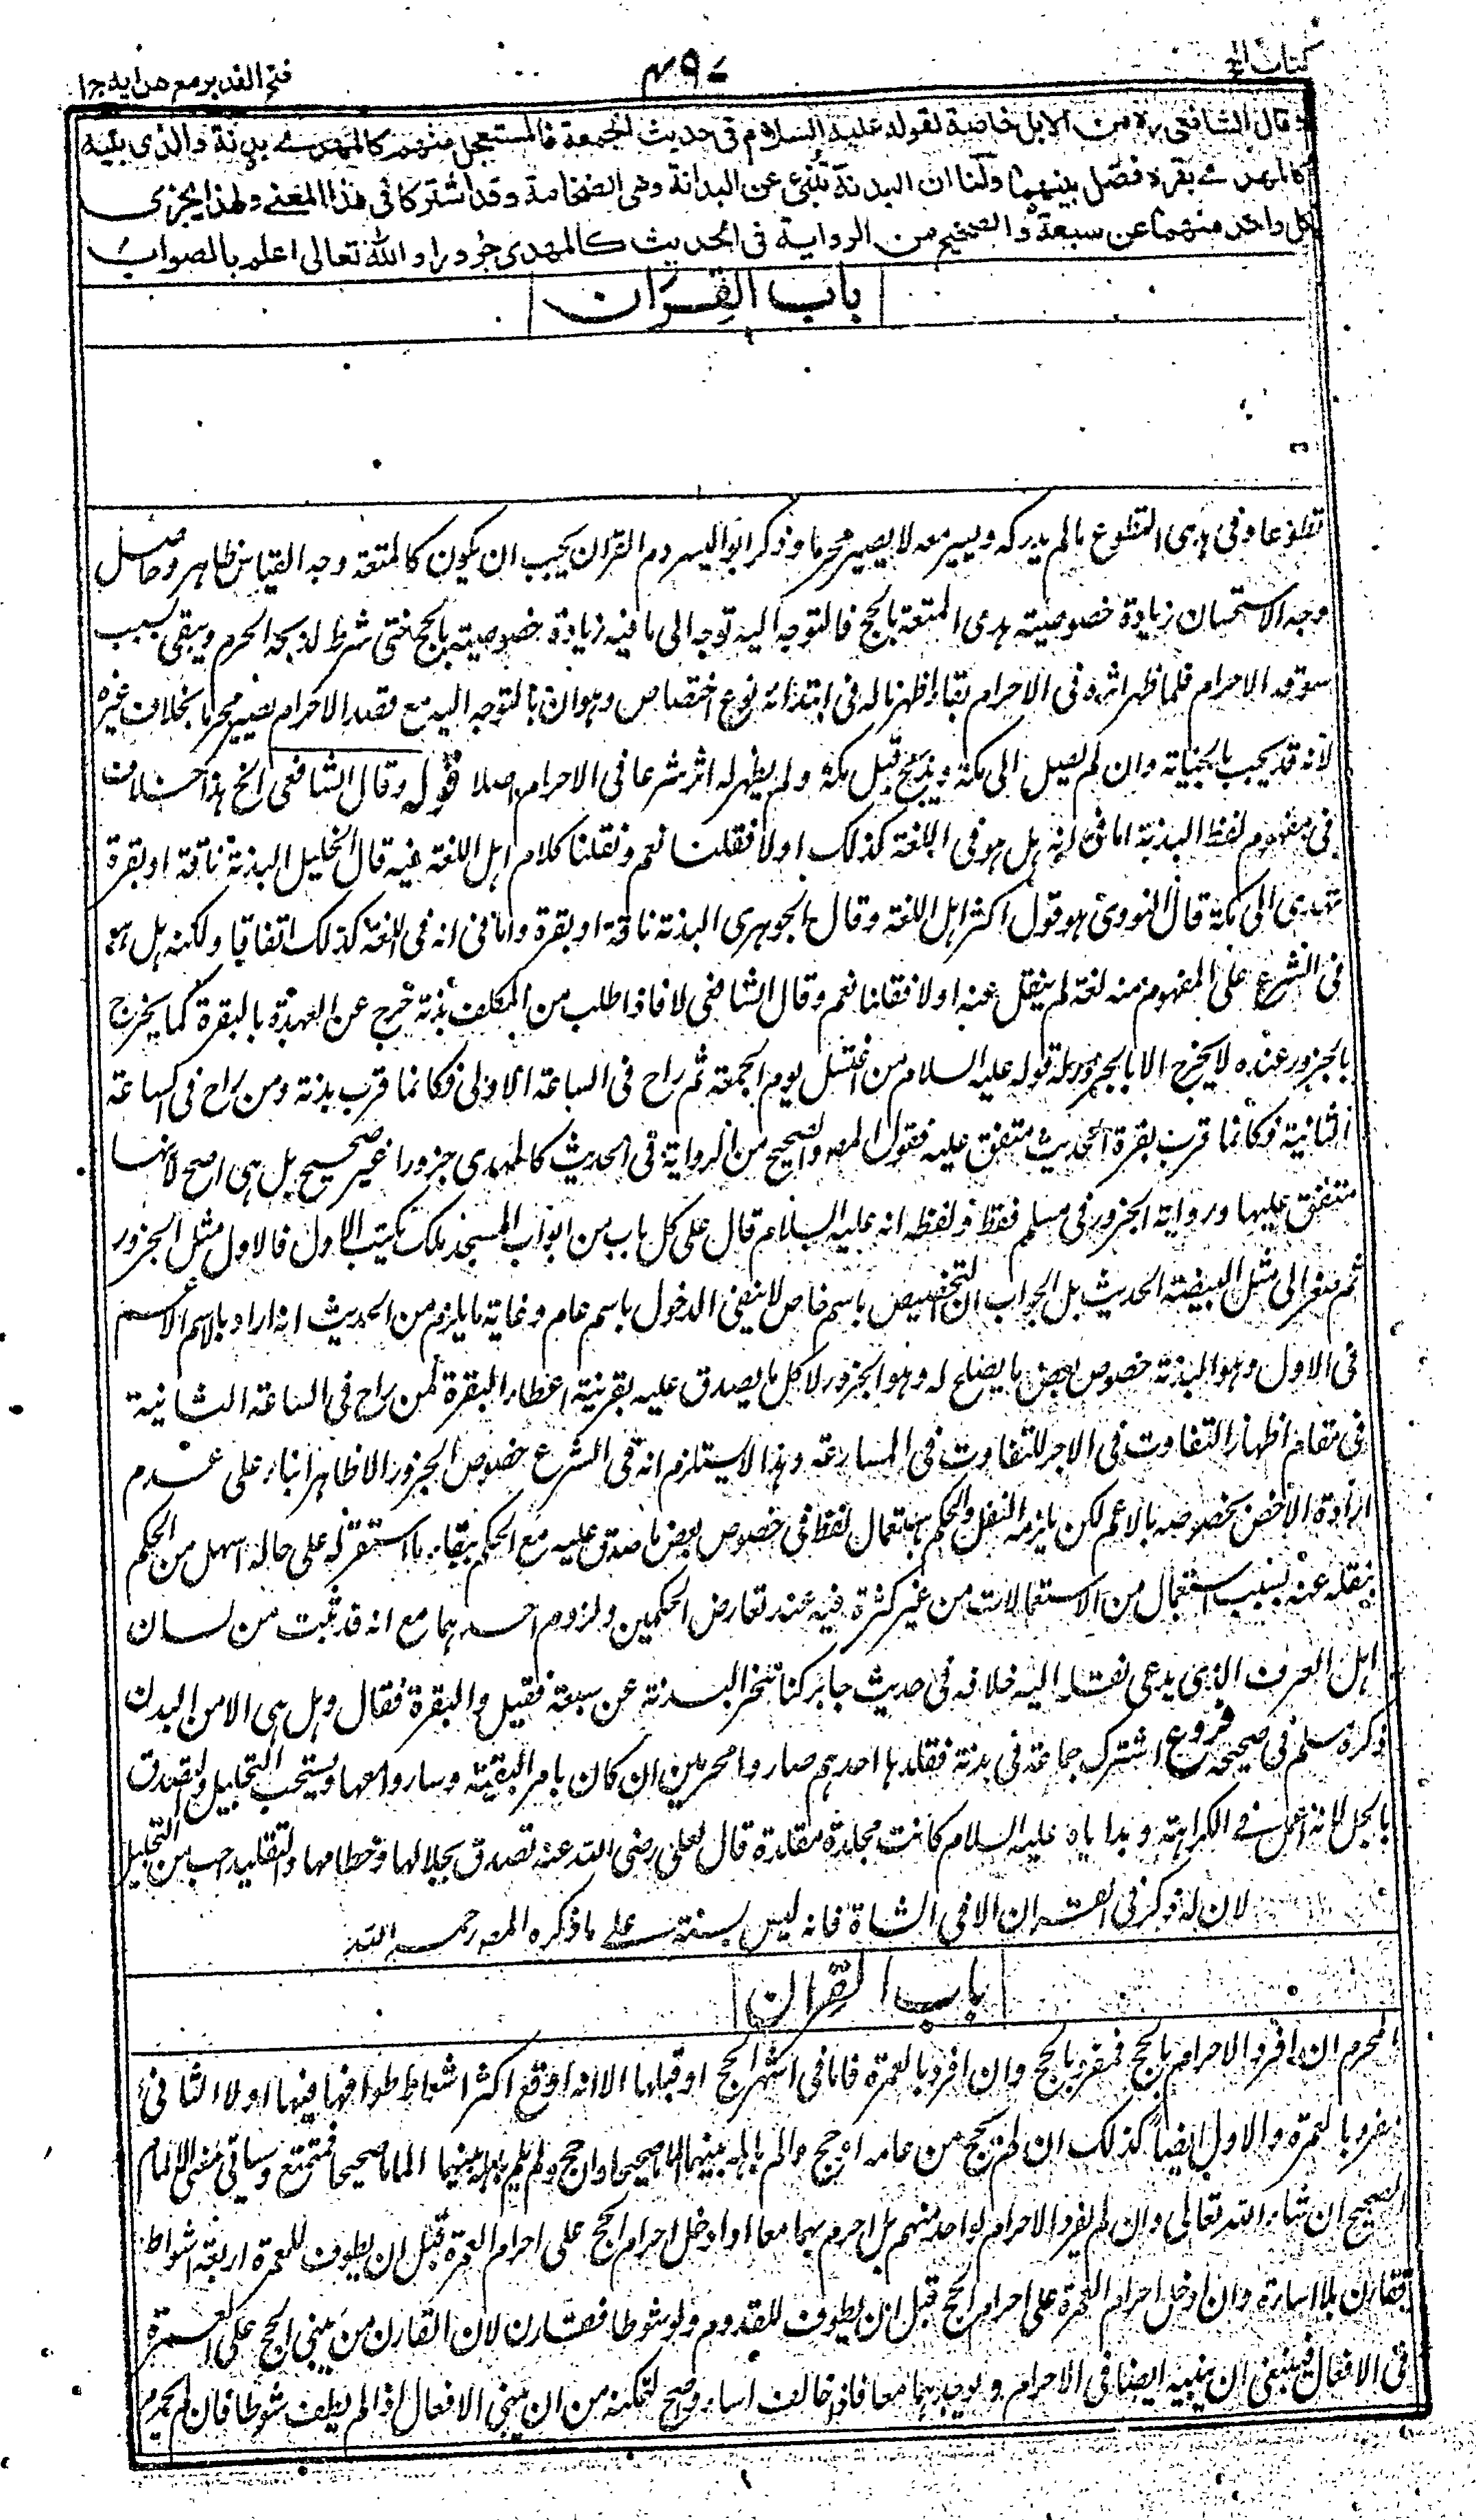 كتاب الحج
۴۹۷
فتح القدير مع هدايه ج۱
وقال الشافعي رہ من الابل خاصة لقوله عليه السلام في حديث الجمعة فالمستعجل منهم كالمهدي بدنة والذي يليه
كالمهدي بقرة فصل بينهما ولنا ان البدنة تنبئ عن البدانة وهي الضخامة وقد اشتركا في هذا المعنى ولهذا يجزي
كل واحد منهما عن سبعة والصحيح من الرواية في الحديث كالمهدي جزورا والله تعالى اعلم بالصواب
باب القران
تطوعا وفي هدى التطوع ما لم يدركه ويسير معه لا يصير محرما وذكر ابو اليسر دم القران يجب ان يكون كالمتعة وجه القياس ظاهر وحاصل
وجه الاستحسان زيادة خصوصية هدى المتعة بالحج فالتوجه اليه توجه الى ما فيه زيادة خصوصية بالحج حتى شرط لذبحه الحرم ويبقى بسبب
سوقه الاحرام فلما ظهر اثره في الاحرام بقاء اظهرنا له في ابتدائه نوع اختصاص وهو ان بالتوجه اليه مع قصد الاحرام يصير محرما بخلاف غيره
لأنه قد يجب بالجناية وان لم يصل الى مكة ويذبح قبل مكة ولم يظهر له اثر شرعا في الاحرام اصلا قوله وقال الشافعي الخ هذا خلاف
في مفهوم لفظ البدنة اما في انه هل هو في اللغة كذلك اولا فقلنا نعم ونقلنا كلام اهل اللغة فيه قال الخليل البدنة ناقة او بقرة
تهدى الى مكة قال النووي هو قول اكثر اهل اللغة وقال الجوهري البدنة ناقة او بقرة واما في انه في اللغة كذلك اتفاقا ولكنه هل هو
في الشرع على المفهوم منه لغة لم ينقل عنه اولا فقلنا نعم وقال الشافعي لا فاذا طلب من المكلف بدنة خرج عن العهدة بالبقرة كما يخرج
بالجزور وعنده لا يخرج الا بالجزور له قوله عليه السلام من اغتسل يوم الجمعة ثم راح في الساعة الاولى فكانما قرب بدنة ومن راح في الساعة
الثانية فكأنما قرب بقرة الحديث متفق عليه فقول المصـ والصحيح من الرواية في الحديث كالمهدي جزورا غير صحيح بل هي اصح لأنها
متفق عليها ورواية الجزور في مسلم فقط ولفظه انه عليه السلام قال على كل باب من ابواب المسجد ملك يكتب الاول فالاول مثل الجزور
ثم صغر الى مثل البيضة الحديث بل الجواب ان التخصيص باسم خاص لا ينفي الدخول باسم عام وغاية ما يلزم من الحديث انه اراد بالاسم الاعم
في الاول وهو البدنة خصوص بعض ما يصلح له وهو الجزور لا كل ما يصدق عليه بقرينة اعطاء البقرة لمن راح في الساعة الثانية
في مقام اظهار التفاوت في الاجر للتفاوت في المسارعة وهذا لا يستلزم انه في الشرع خصوص الجزور الا ظاهرا بناء على عدم
ارادة الاخص بخصوصه بالاعم لكن يلزمه النقل والحكم باستعمال لفظ في خصوص بعض ما صدق عليه مع الحكم ببقاء ما استقر له على حاله اسهل من الحكم
بنقله عنه بسبب استعمال من الاستعمالات من غير كثرة فيه عند تعارض الحكمين ولزوم احدهما مع انه قد ثبت من لسان
اهل العرف الذي يدعى نقله اليه خلافه في حديث جابر كنا ننحر البدنة عن سبعة فقيل والبقرة فقال وهل هي الا من البدن
ذكره مسلم في صحيحه فروع اشترك جماعة في بدنة فقلدها احدهم صاروا محرمين ان كان بامر البقية وساروا معها ويستحب التجليل والتصدق
بالجل لانه اعمل في الكرامة وهداياه عليه السلام كانت مجللة مقلدة قال لعلي رضي الله عنه تصدق بجلالها وخطامها والتقليد احب من التجليل
لان له ذكر في القران الا في الشاة فانه ليس بسنة على ما ذكره المصـ رحمه الله
باب القران
المحرم ان افرد الاحرام بالحج فمفرد بالحج وان افرد بالعمرة فاما في اشهر الحج او قبلها الا انه اوقع اكثر اشواط طوافها فيها اولا الثاني
مفرد بالعمرة والاول ايضا كذلك ان لم يحج من عامه او حج والم باهله بينهما الماما صحيحا وان حج ولم يلم باهله بينهما الماما صحيحا فمتمتع وسيأتي معنى الالمام
الصحيح ان شاء الله تعالى وان لم يفرد الاحرام لواحد منهم بل احرم بهما معا او ادخل احرام الحج على احرام العمرة قبل ان يطوف للعمرة اربعة اشواط
فقارن بلا اساءة وان ادخل احرام العمرة على احرام الحج قبل ان يطوف للقدوم ولو شوطا فقارن لان القارن من يبني الحج على العمرة
في الافعال فينبغي ان يبنيه ايضا في الاحرام و يوجدهما معا فاذا خالف اساء وصح لتمكنه من ان يبني الافعال اذا لم يطف شوطا فان لم يحرم